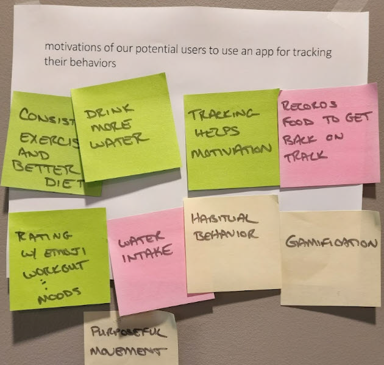 motivations of our potential users to use an app for tracking
their behaviors
CONSIST
EXERCIS
AND
BETTER
DIET
DRINK
MORE
WATER
TRACKING
HELPS
MOTIVATION
RECORDS
FOOD TO GET
BACK ON
TRACK
RATING
W/ EMOJI
WORKOUT
:
MOODS
WATER
INTAKE
HABITUAL
BEHAVIOR
GAMIFICATION
PURPOSEFUL
MOVEMENT